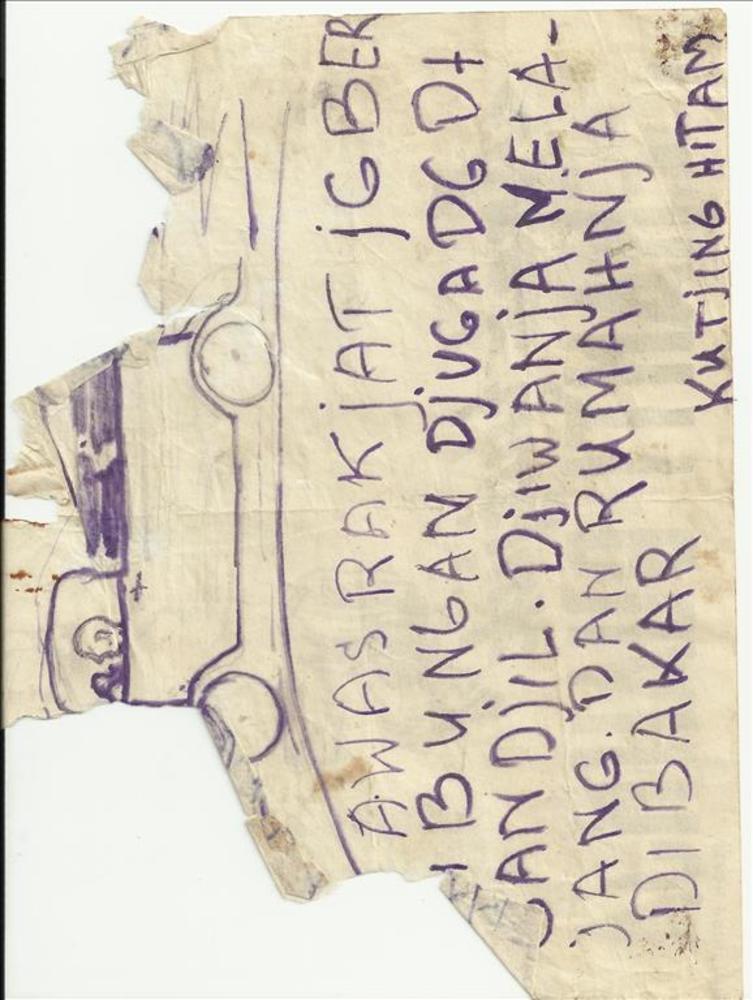 AWAS RAKJAT JG BER
I BUNGAN DJUGA DG DI
JANDJIL. DJIWANJA MELA-
JANG. DAN RUMAHNJA
DI BAKAR
KUTJING HITAM